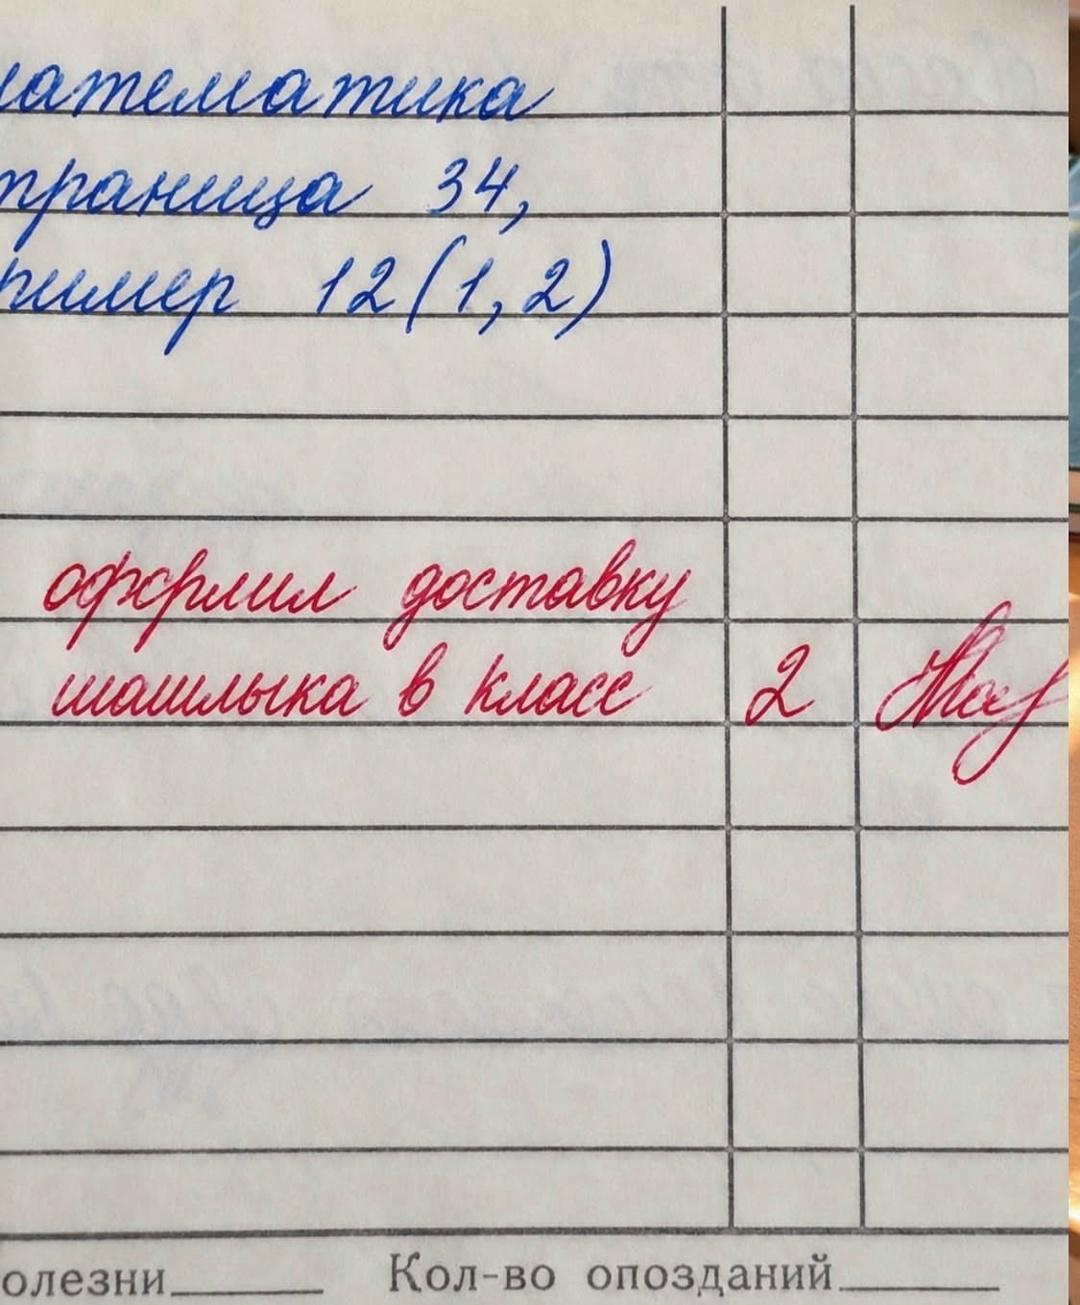 математика
траница 34,
ример 12(1,2)
оформил доставку
шашлыка в класс 2
олезни Кол-во опозданий